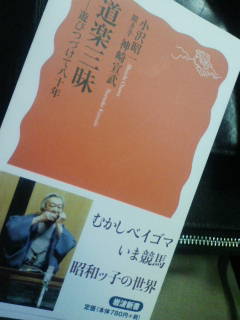 道楽三昧
―遊びつづけて八十年
小沢昭一
聞き手 神崎宣武
むかしベイゴマ
いま競馬
昭和ッ子の世界
岩波新書
定価(本体780円+税)